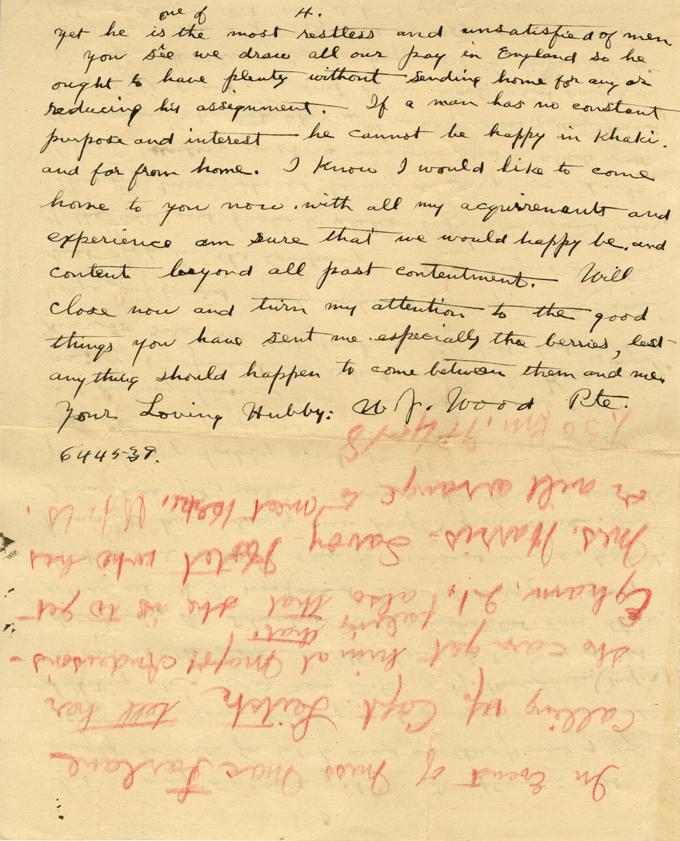 one of 4.
yet he is the most restless and unsatisfied of men
you see we draw all our pay in England so he
ought to have plenty without sending home for any or
reducing his assignment. If a man has no constant
purpose and interest he cannot be happy in Khaki.
and far from home. I know I would like to come
home to you now. with all my acquirements and
experience am sure that we would happy be. and
content beyond all past contentment. Will
close now and turn my attention to the good
things you have sent me. especially the berries, lest
anything should happen to come between them and me.
Your Loving Hubby: W J. Wood Pte.
644539.
In Event of Miss Mac Farlane
calling up Capt. Leitch, tell her
she can get him at Major Anderson's -
Egham, also that she is to get
Mrs. Harris - Savoy Hotel who has
or will arrange to meet